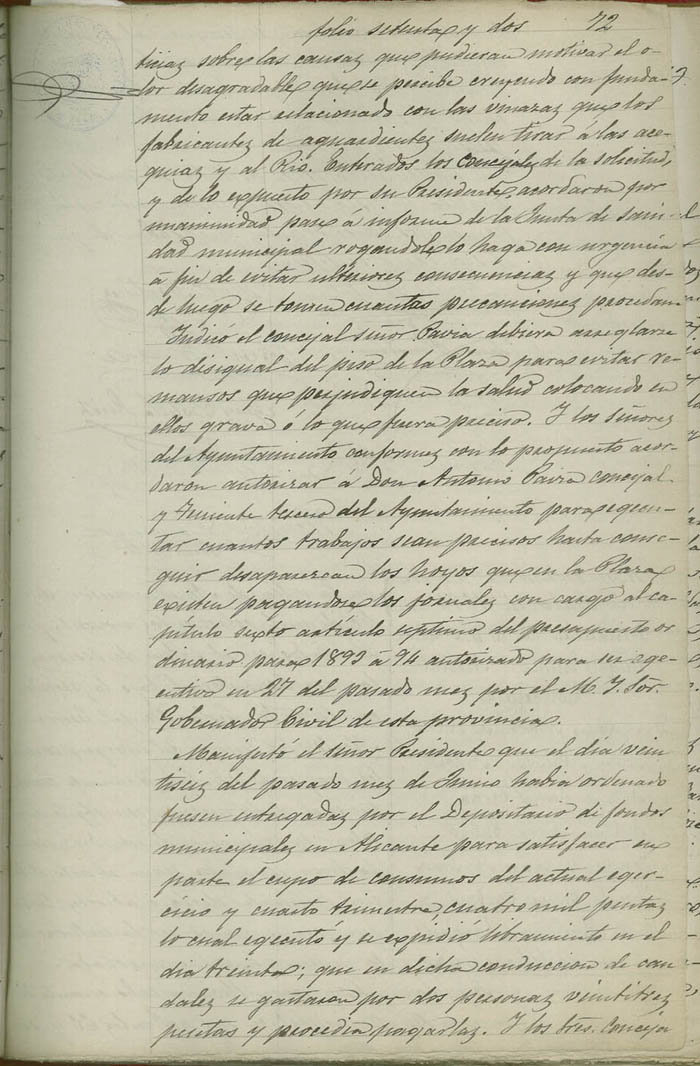 folio setenta y dos 72
ticias sobre las causas que pudieran motivar el o-
lor desagradable que se percibe creyendo con funda-
mento estar relacionado con las vinazas que los
fabricantes de aguardientes suelen tirar á las ace-
quias y al Rio. Enterados los concejales de la solicitud,
y de lo expuesto por su Presidente acordaron por
unanimidad pase á informe de la Junta de sani-
dad municipal rogandole lo haga con urgencia
á fin de evitar ulteriores consecuencias y que des-
de luego se tomen cuantas precauciones procedan.
Indicó el concejal señor Pavia debiera arreglarse
lo disigual del piso de la Plaza para evitar re-
mansos que perjudiquen la salud colocando en
ellos grava ó lo que fuera preciso. Y los señores
del Ayuntamiento conformes con lo propuesto acor-
daron autorizar á Don Antonio Pavia concejal
y Teniente tercero del Ayuntamiento para egecu-
tar cuantos trabajos sean precisos hasta conse-
guir desaparezcan los hoyos que en la Plaza
existen pagandose los jornales con cargo al ca-
pítulo sexto artículo septimo del presupuesto or
dinario para 1893 á 94 autorizado para ser ege-
cutivo en 27 del pasado mes por el M. Y. Sor.
Gobernador Civil de esta provincia.
Manifestó el señor Presidente que el dia vein
tiseis del pasado mes de Junio habia ordenado
fuesen entregadas por el Depositario de fondos
municipales en Alicante para satisfacer en
parte el cupo de consumos del actual eger-
cicio y cuarto trimestre, cuatro mil pesetas
lo cual egecutó y se expidió libramiento en el
dia treinta; que en dicha conduccion de cau
dales se gastaron por dos personas veintitres
pesetas y procedia pagarlas. Y los tres. conceja